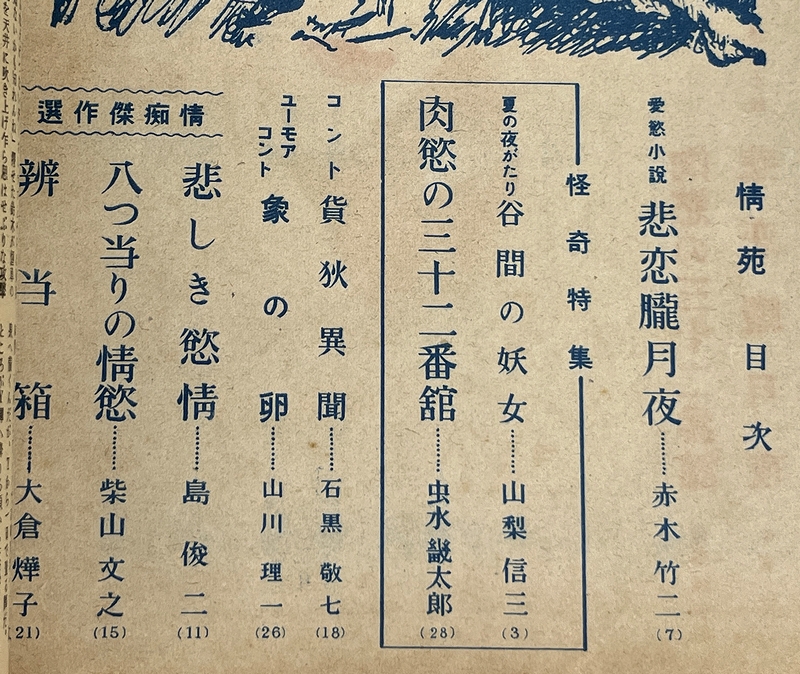 情苑目次
愛慾小説 悲恋朧月夜……赤木竹二(7)
怪奇特集
夏の夜がたり 谷間の妖女……山梨信三(3)
肉慾の三十二番舘……虫水畿太郎(28)
コント 貨狄異聞……石黒敬七(18)
ユーモアコント 象の卵……山川理一(26)
情痴傑作選
悲しき慾情……島俊二(11)
八つ当りの情慾……柴山文之(15)
辨当箱……大倉燁子(21)